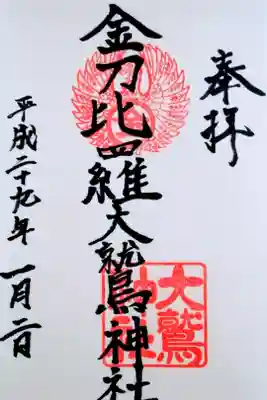 奉拝
金刀比羅大鷲神社
大鷲
神社
平成二十九年 一月二日